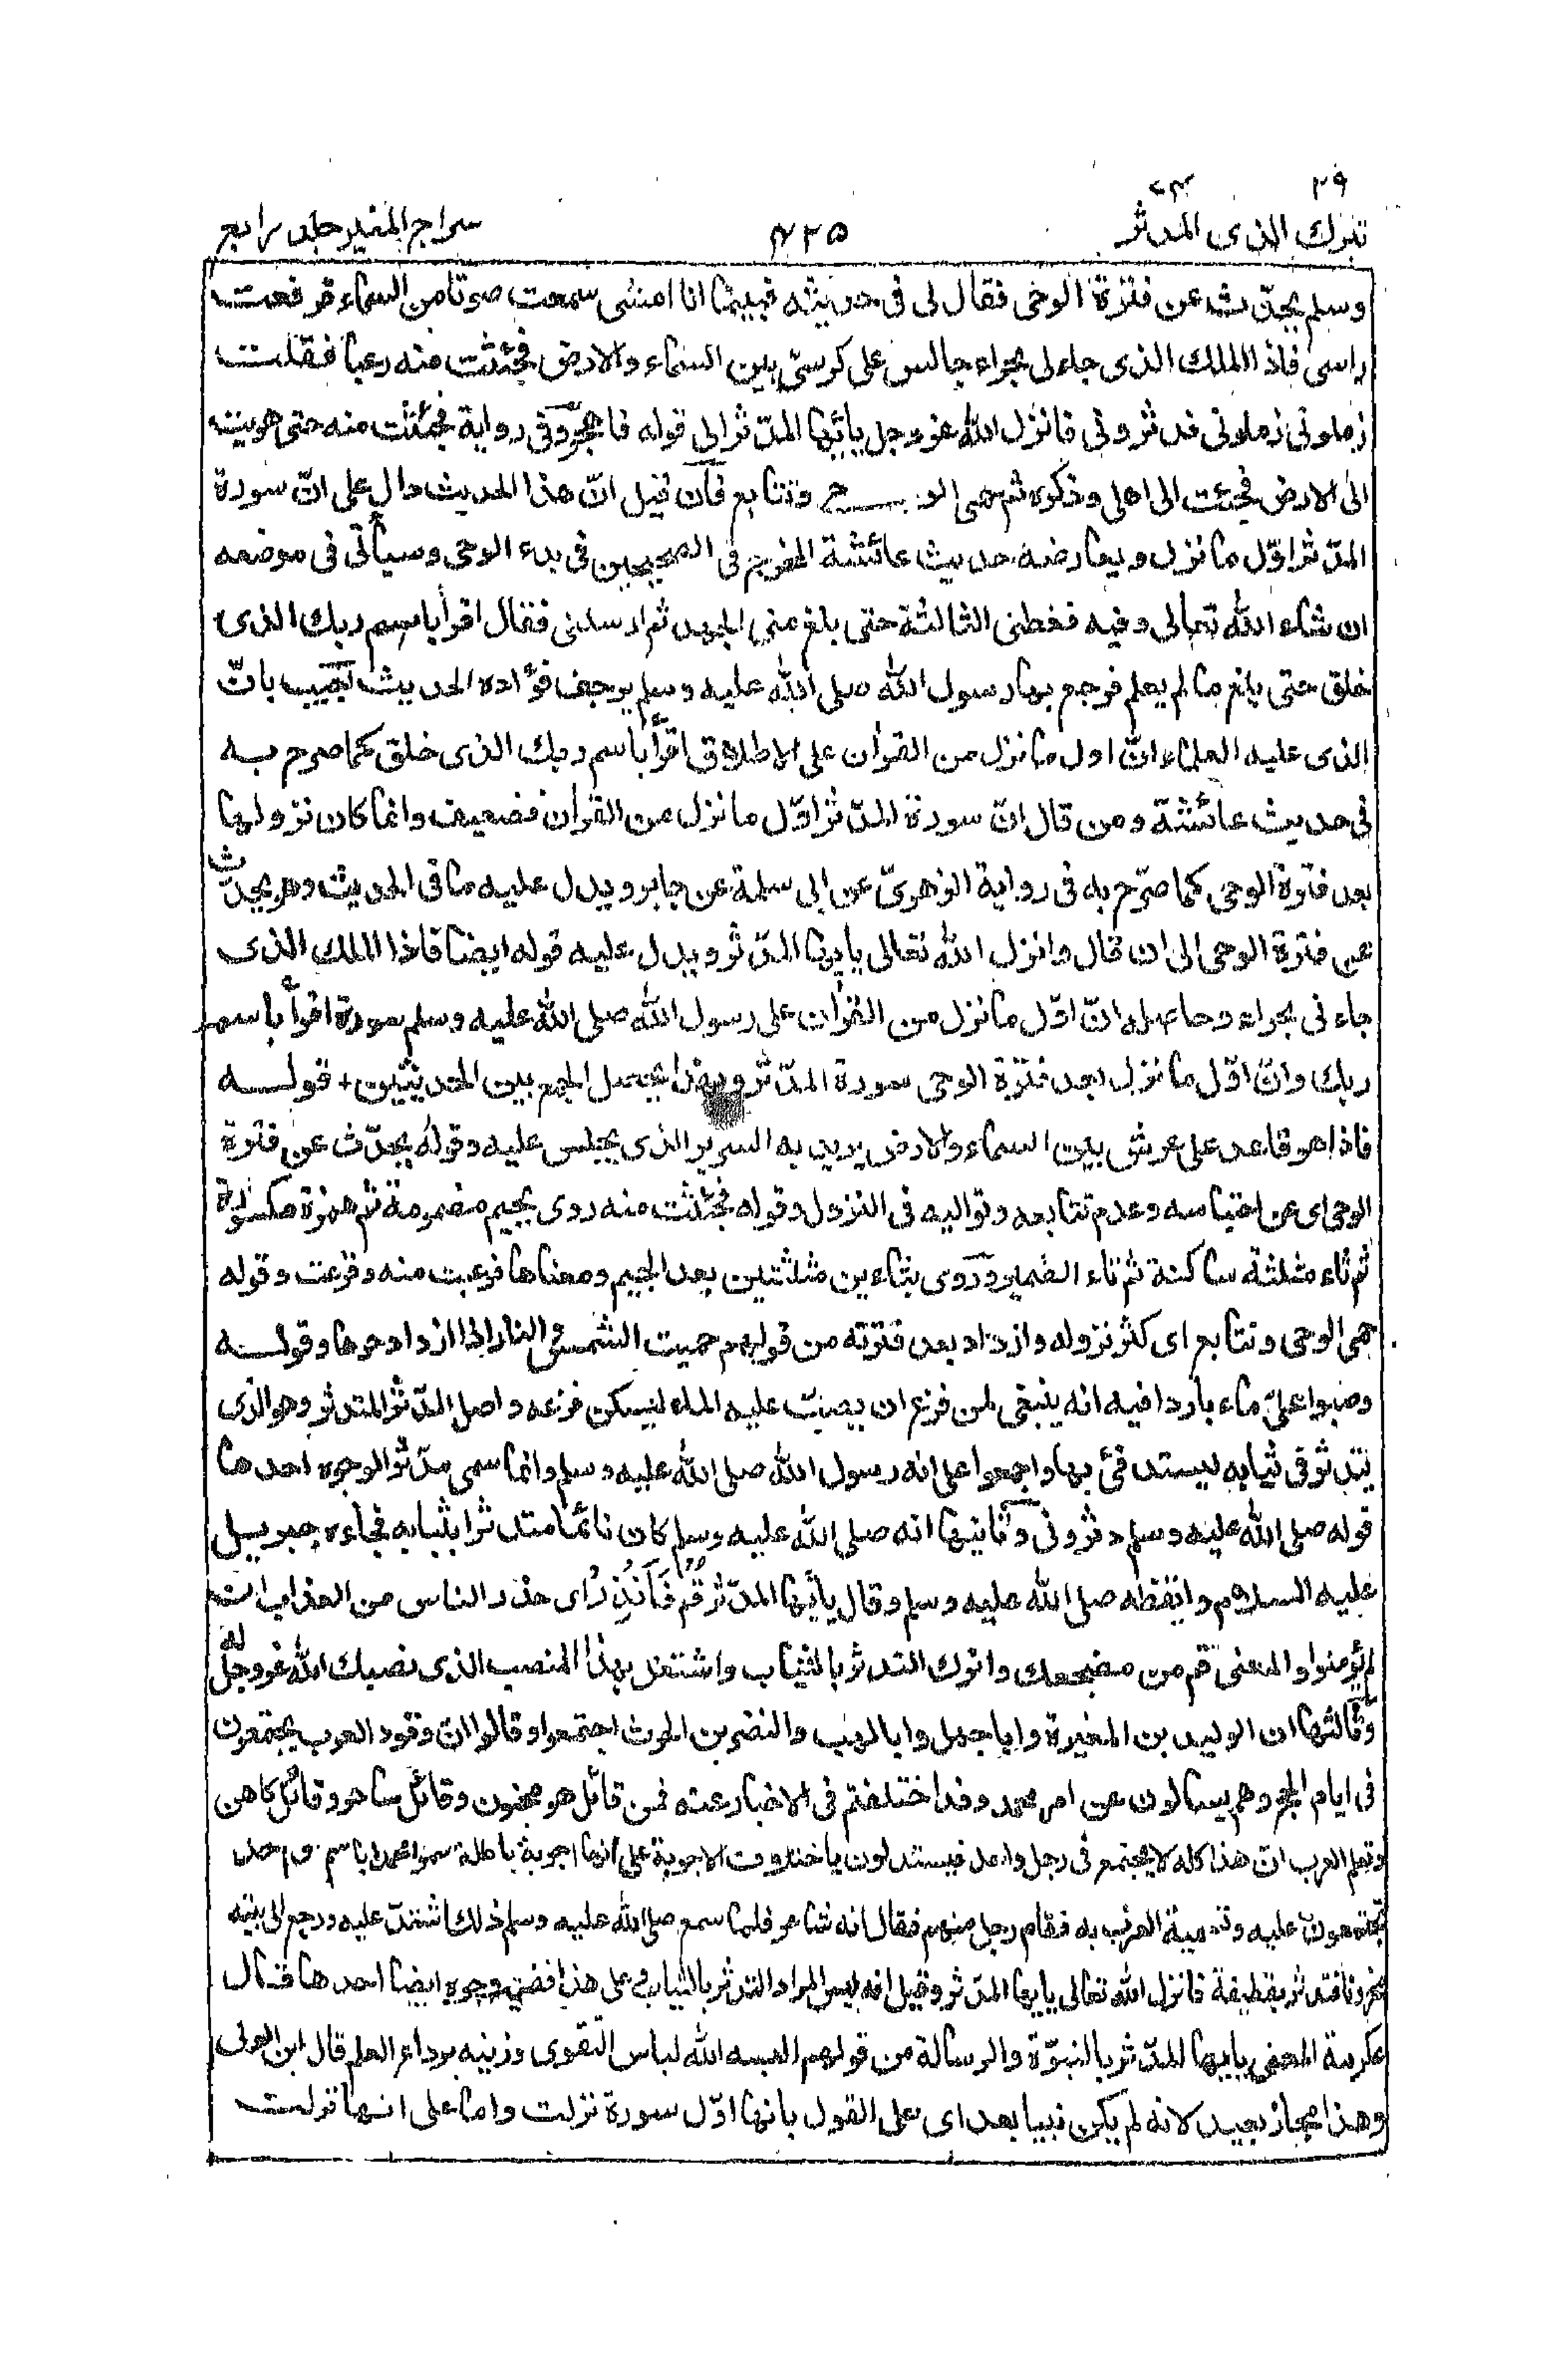 ٢٩
٧٤
تبرك الذى المدثر
٤٢٥
سراج المنير جلد رابع
وسلم يحدّث عن فترة الوحى فقال لى فى حديثه فبينما انا امشى سمعت صوتا من السماء فرفعت
راسى فاذا الملك الذى جاءلى بحراء جالس على كرسىّ بين السماء والارض فجئثت منه رعبا فقلت
زملونى زملونى فدثرونى فانزل الله عزوجل يايّها المدّثر الى قوله فاهجر وفى رواية فجئثت منه حتى هويت
الى الارض فجئت الى اهلى وذكره ثم حمى الوحى وتتابع فان قيل انّ هذا الحديث دال على انّ سورة
المدّثر اوّل ما نزل ويعارضه حديث عائشة المخرج فى الصحيحين فى بدء الوحى وسيأتى فى موضعه
ان شاء الله تعالى وفيه فغطنى الثالثة حتى بلغ منى الجهد ثم ارسلنى فقال اقرأ باسم ربك الذى
خلق حتى بلغ ما لم يعلم فرجع بها رسول الله صلى الله عليه وسلم يرجف فؤاده الحديث اجيب بانّ
الذى عليه العلماء انّ اول ما نزل من القران على الاطلاق اقرأ باسم ربك الذى خلق كما صرح به
فى حديث عائشة ومن قال انّ سورة المدّثر اوّل ما نزل من القران فضعيف وانما كان نزولها
بعد فترة الوحى كما صرّح به فى رواية الزهرىّ عن ابى سلمة عن جابر ويدل عليه ما فى الحديث وهو يحدّث
عن فترة الوحى الى ان قال وانزل الله تعالى يايها المدّثر ويدل عليه قوله ايضا فاذا الملك الذى
جاء نى بحراء وحاصله انّ اوّل ما نزل من القران على رسول الله صلى الله عليه وسلم سورة اقرأ باسم
ربك وانّ اوّل ما نزل بعد فترة الوحى سورة المدّثر وبهذا يحصل الجمع بين الحديثين + قوله
فاذا هو قاعد على عرش بين السماء والارض يريد به السرير الذى يجلس عليه وقوله يحدّث عن فترة
الوحى اى عن احتباسه وعدم تتابعه وتواليه فى النزول وقوله فجئثت منه روى بجيم مضمومة ثم همزة مكسورة
ثم ثاء مثلثة ساكنة ثم تاء الضمير وروى بثاءين مثلثتين بعد الجيم ومعناها فرعبت منه وفزعت وقوله
حمى الوحى وتتابع اى كثر نزوله وازداد بعد فترته من قولهم حميت الشمس والنار اذا ازداد حرها وقوله
وصبوا علىّ ماء باردا فيه انه ينبغى لمن فزع ان يصبّ عليه الماء ليسكن فزعه واصل المدّثر المتدثر وهو الذى
يتدثر فى ثيابه ليستدفئ بها واجمعوا على انه رسول الله صلى الله عليه وسلم وانما سمى مدّثر الوجوه احدها
قوله صلى الله عليه وسلم دثرونى وثانيها انه صلى الله عليه وسلم كان نائما متدثرا بثيابه فجاءه جبريل
عليه السلام وايقظه صلى الله عليه وسلم وقال يايّها المدّثر قُمْ فَاَنْذِرْ اى حذر الناس من العذاب ان
لم يؤمنوا والمعنى قم من مضجعك واترك التدثر بالثياب واشتغل بهذا المنصب الذى نصبك الله عزوجل له
وثالثها ان الوليد بن المغيرة وابا جهل وابا لهب والنضر بن الحرث اجتمعوا وقالوا ان وفود العرب يجتمعون
فى ايام الحج وهم يسالون عن امر محمد وقد اختلفتم فى الاخبار عنه فمن قائل هو مجنون وقائل ساحر وقائل كاهن
وتعلم العرب انّ هذا كله لا يجتمع فى رجل واحد فيستدلون باختلاف الاجوبة على انها اجوبة باطلة سموا محمدا باسم واحد
تجتمعون عليه وتسمية العرب به فقام رجل منهم فقال انه شاعر فلما سمع صلى الله عليه وسلم ذلك اشتدّ عليه ورجع الى بيته
محزونا فتدثر بقطيفة فانزل الله تعالى يايها المدّثر وقيل انه ليس المراد التدثر بالثياب وعلى هذا ففيه وجوه ايضا احدها قال
عكرمة المعنى يايها المدّثر بالنبوّة والرسالة من قولهم البسه الله لباس التقوى وزينه برداء العلم قال ابن العربى
وهذا مجاز بعيد لانه لم يكن نبيا بعد اى على القول بانها اوّل سورة نزلت واما على انها نزلت